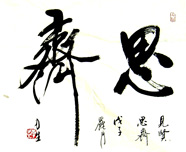 思齊
見賢
思齊
戊子